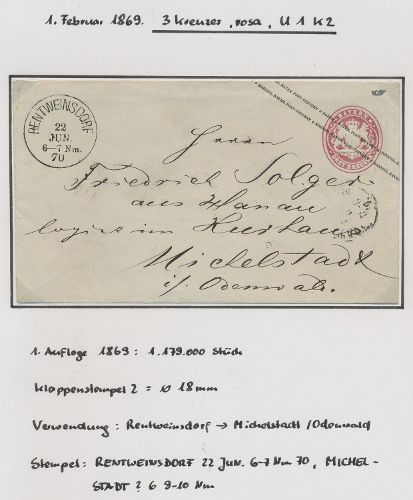 1. Februar 1869. 3 Kreuzer, rosa, U 1 K2
RENTWEINSDORF
22
JUN.
6-7 Nm.
70
BAYERN
Herrn
Friedrich Solger
aus Hanau
logirt im Kurhaus
Michelstadt
i/s Odenwald.
1. Auflage 1869: 1.179.000 Stück
Klappenstempel 2 = ø 18 mm
Verwendung: Rentweinsdorf → Michelstadt/Odenwald
Stempel: RENTWEINSDORF 22 JUN. 6-7 Nm 70, MICHEL-
STADT ? 6 9-10 Nm